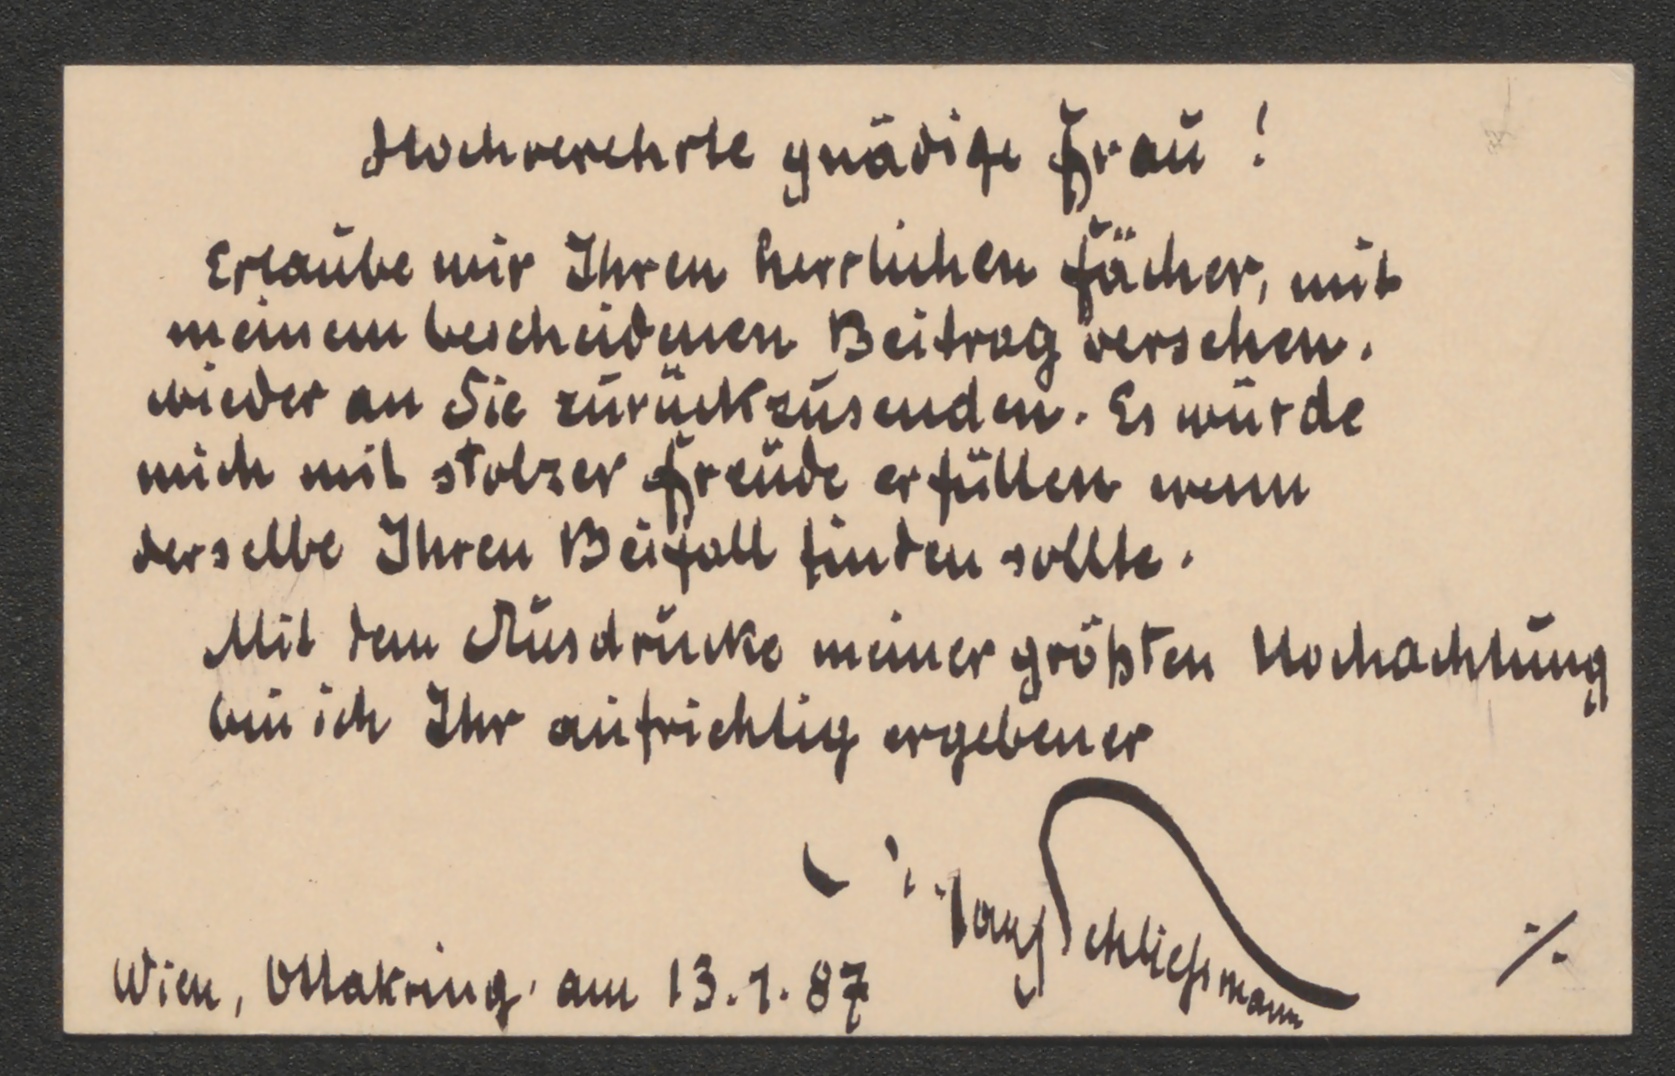 Hochverehrte gnädige Frau !
Erlaube mir Ihren herrlichen Fächer, mit
meinem bescheidenen Beitrag versehen.
wieder an Sie zurückzusenden. Es würde
mich mit stolzer Freude erfüllen wenn
derselbe Ihren Beifall finden sollte.
Mit dem Ausdrucke meiner größten Hochachtung
bin ich Ihr aufrichtig ergebener
Hans Schließmann
Wien, Ottakring. am 13.1.87
./.